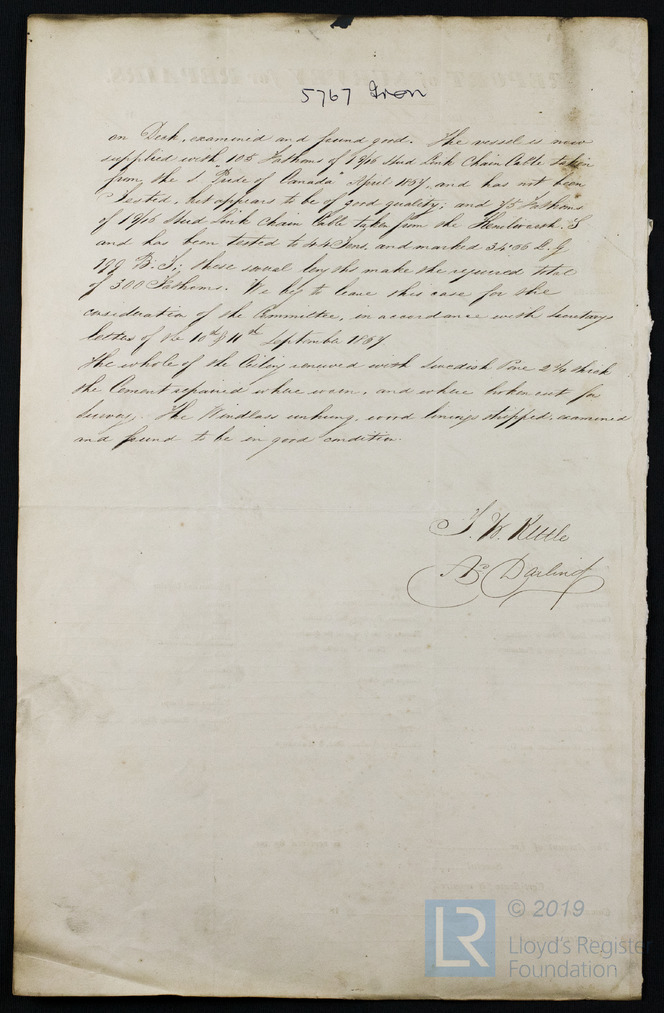 5767 Iron
on Deck, examined and found good. The vessel is now
supplied with 105 Fathoms of 1 9/16 Stud Link Chain Cable taken
from the S "Pride of Canada" April 1857, and has not been
Tested, but appears to be of good quality; and 75 Fathoms
of 1 9/16 Stud Link Chain Cable taken from the S
and has been tested to 44 Tons, and marked
these several lengths make the required total
of 300 Fathoms. We beg to leave this case for the
consideration of the Committee, in accordance with Secretarys
letters of the 10th & 11th September 1857
The whole of the Ceiling renewed with Swedish Pine 2 1/2 thick
the Cement repaired where worn, and where broken out for
Survey. The Windlass unhung, wood linings stripped, examined
and found to be in good condition.
J. W. Kettle
Darling
© 2019
LR
Lloyd's Register
Foundation